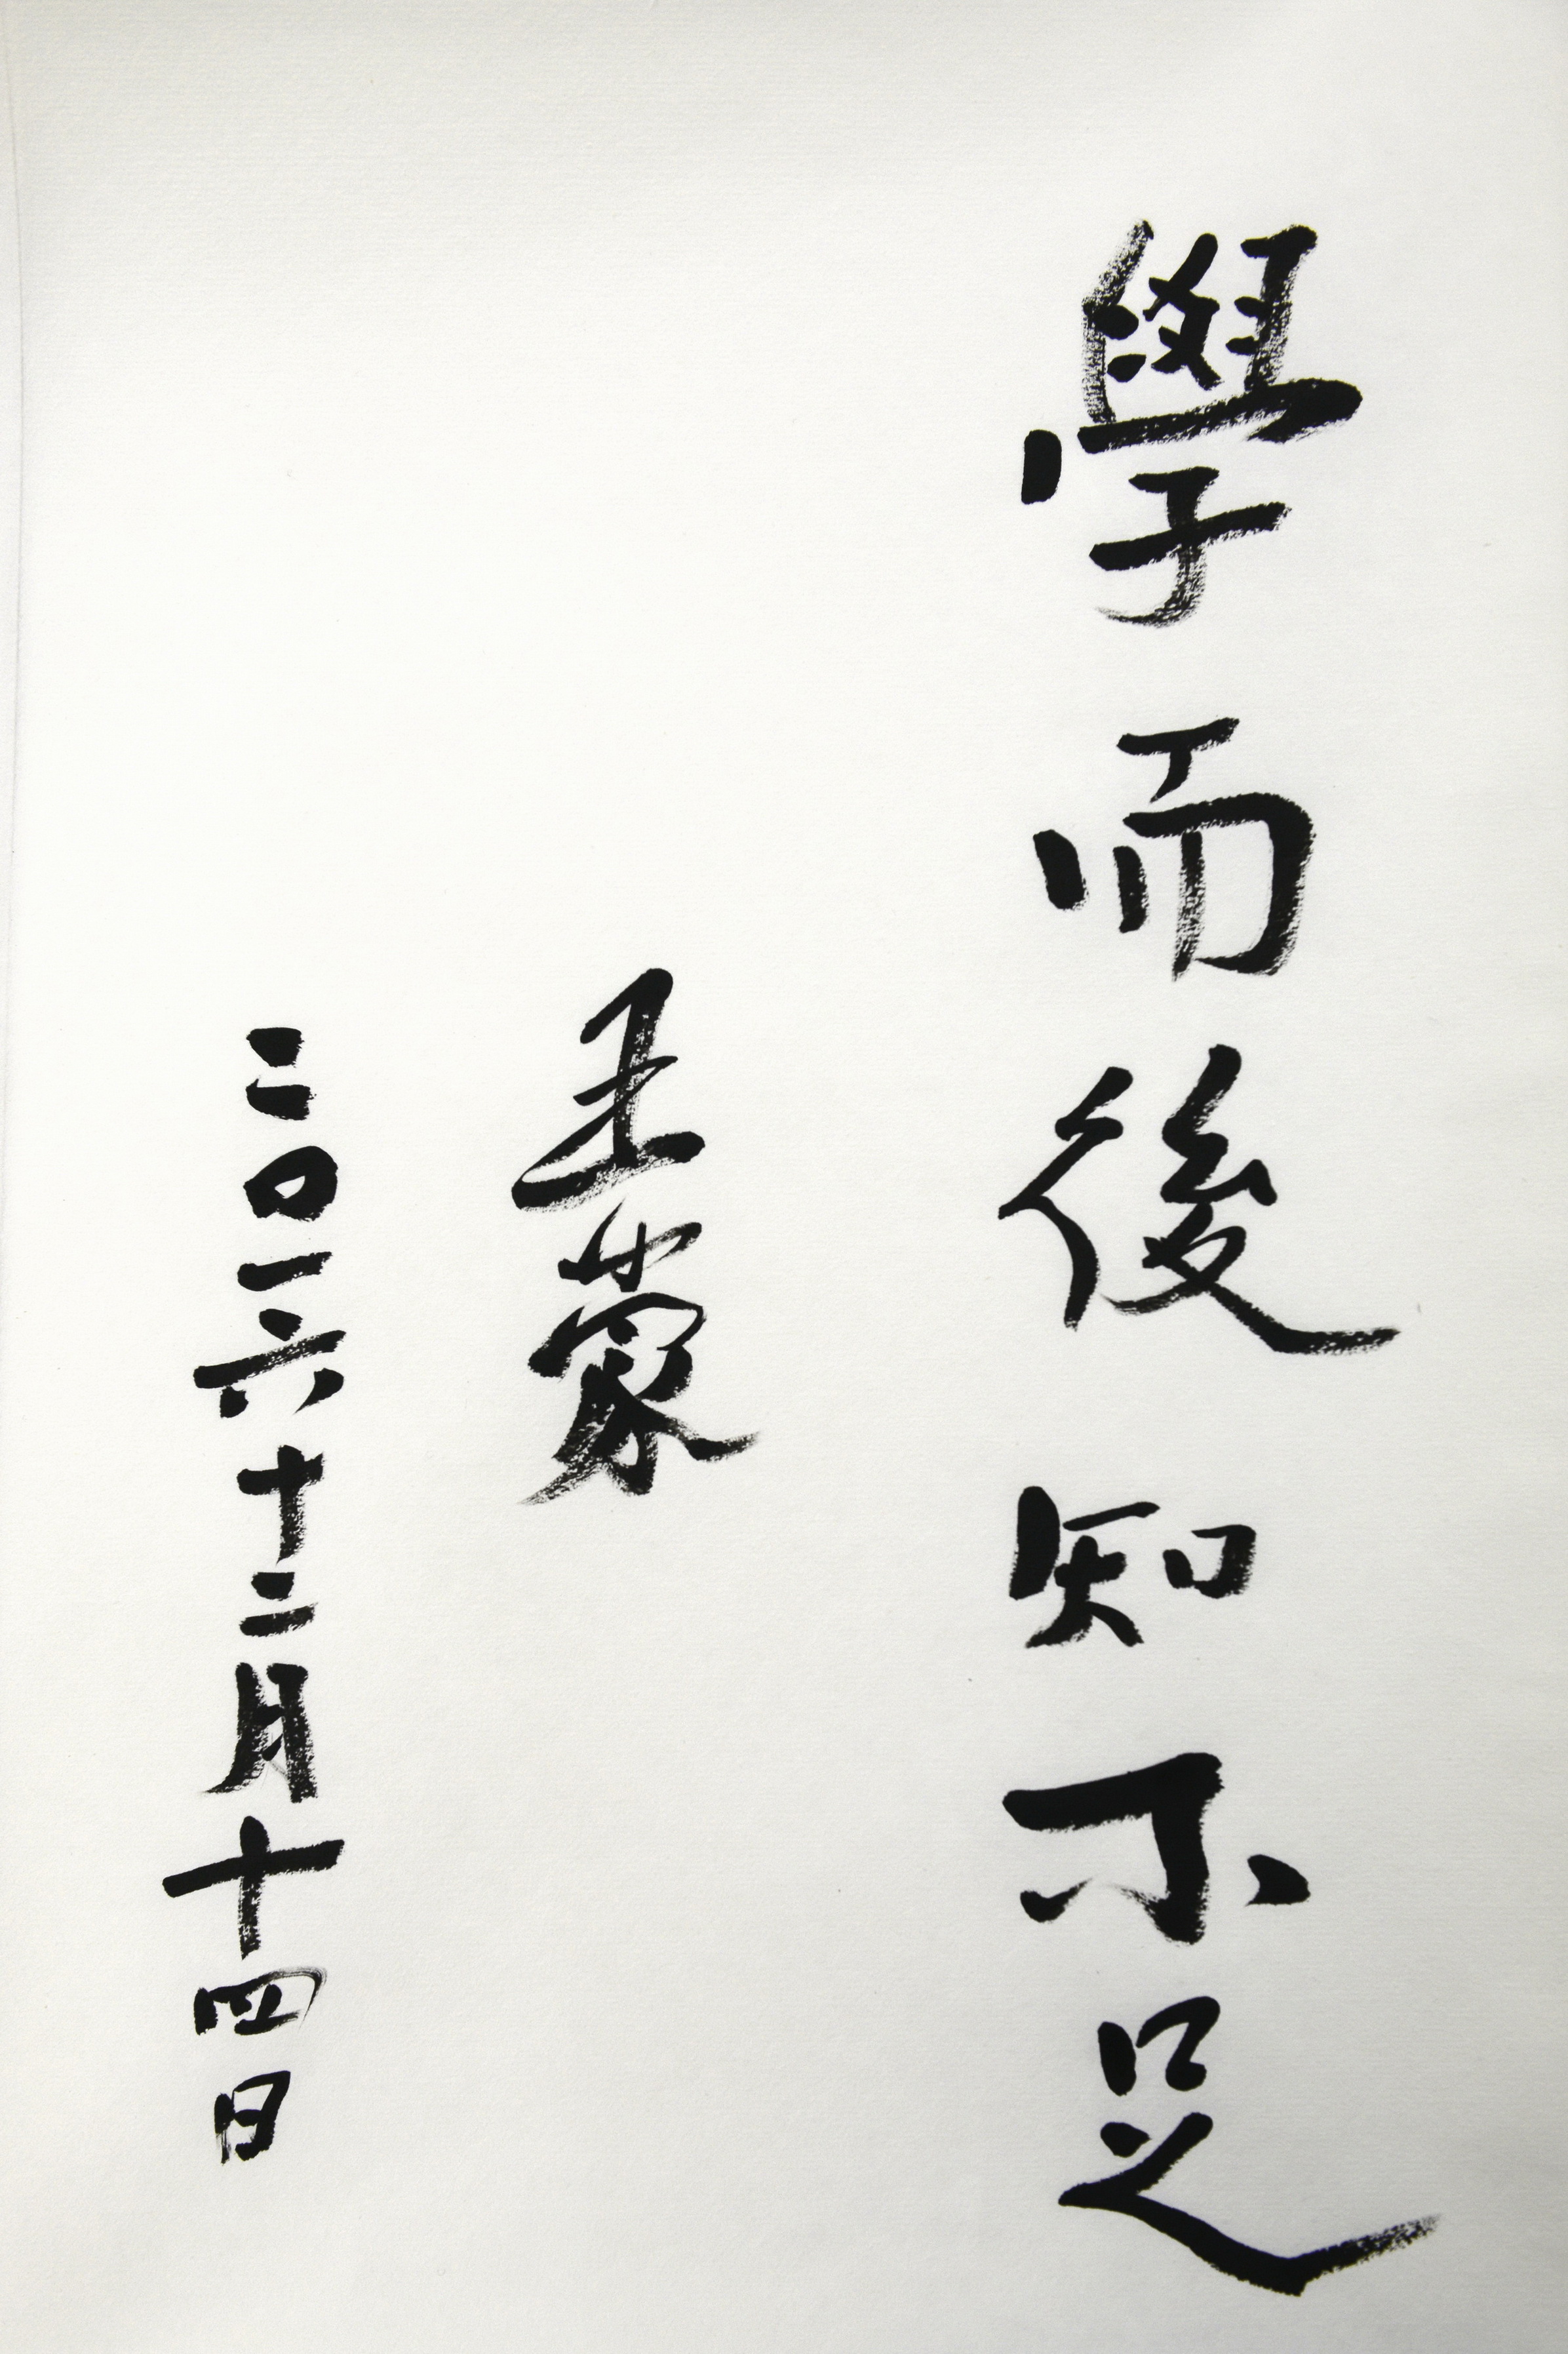 學而後知不足
王蒙
二〇一六十二月十四日